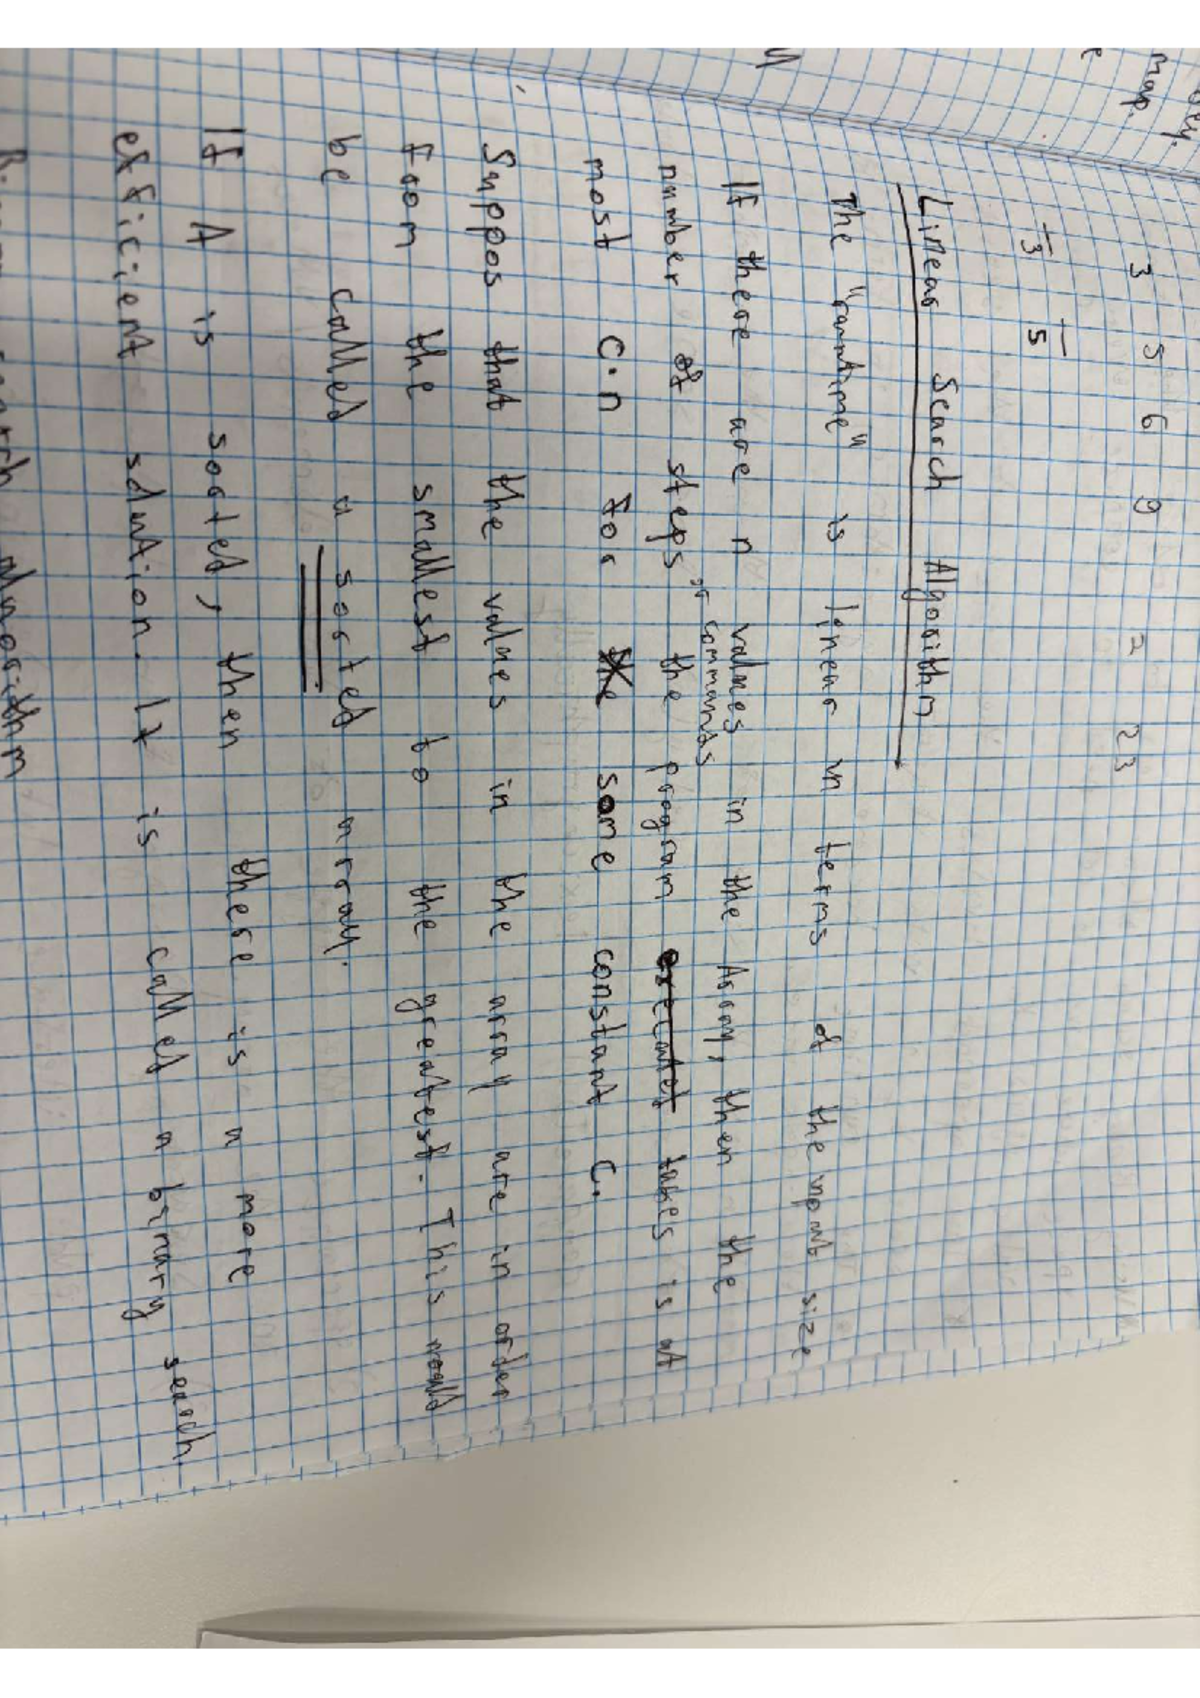 3 5 6 9 2 23
13 5
Linear Search Algorithm
The "runtime" is linear in terms of the input size
If there are n values in the Array, then the
or commands
number of steps the program executed takes is at
most C·n for the some constant C.
Suppos that the values in the array are in order
from the smallest to the greatest. This would
be called a sorted array.
If A is sorted, then there is a more
efficient solution. It is called a binary search.
search algorithm
map.